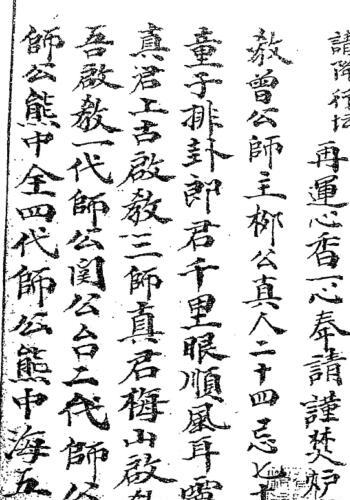 請降行壇 再運心香一心奉請謹焚炉
教曾公師主柳公真人二十四忌七十
童子排卦郎君千里眼順風耳
真君上古啟教三師真君梅山啟教
吾啟教一代師公閔公台二代師公
師公熊中全四代師公熊中海五